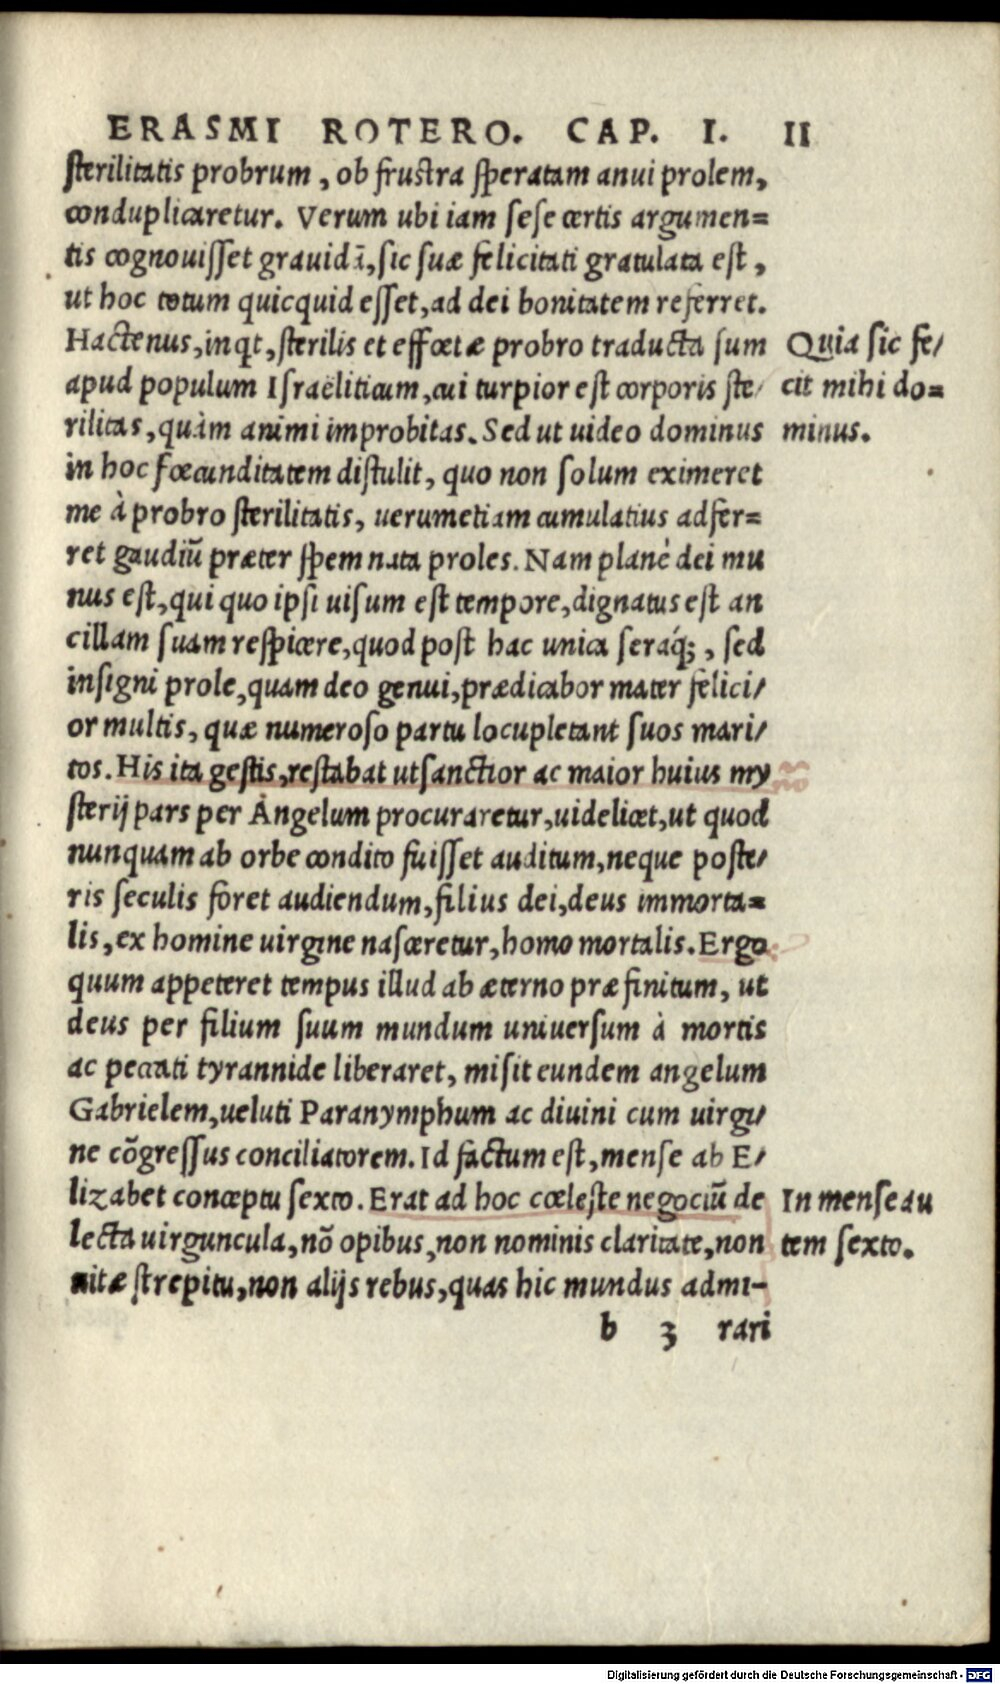 ERASMI ROTERO. CAP. I. 11
sterilitatis probrum, ob frustra speratam anui prolem,
conduplicaretur. Verum ubi iam sese certis argumen=
tis cognouisset grauidã, sic suæ felicitati gratulata est,
ut hoc totum quicquid esset, ad dei bonitatem referret.
Hactenus, inqt, sterilis et effœtæ probro traducta sum
apud populum Israëliticum, cui turpior est corporis ste/
rilitas, quàm animi improbitas. Sed ut uideo dominus
in hoc fœcunditatem distulit, quo non solum eximeret
me à probro sterilitatis, uerumetiam cumulatius adfer=
ret gaudiũ præter spem nata proles. Nam planè dei mu
nus est, qui quo ipsi uisum est tempore, dignatus est an
cillam suam respicere, quod post hac unica seráq;, sed
insigni prole, quam deo genui, prædicabor mater felici/
or multis, quæ numeroso partu locupletant suos mari/
tos. His ita gestis, restabat ut sanctior ac maior huius my
sterij pars per Angelum procuraretur, uidelicet, ut quod
nunquam ab orbe condito fuisset auditum, neque poste/
ris seculis foret audiendum, filius dei, deus immorta=
lis, ex homine uirgine nasceretur, homo mortalis. Ergo
quum appeteret tempus illud ab æterno præfinitum, ut
deus per filium suum mundum uniuersum à mortis
ac peccati tyrannide liberaret, misit eundem angelum
Gabrielem, ueluti Paranymphum ac diuini cum uirgi/
ne cõgressus conciliatorem. Id factum est, mense ab E/
lizabet conceptu sexto. Erat ad hoc cœleste negociũ de
lecta uirguncula, nõ opibus, non nominis claritate, non
uitæ strepitu, non alijs rebus, quas hic mundus admi-
b 3 rari
Quia sic fe/
cit mihi do=
minus.
In mense au
tem sexto.
Digitalisierung gefördert durch die Deutsche Forschungsgemeinschaft - DFG